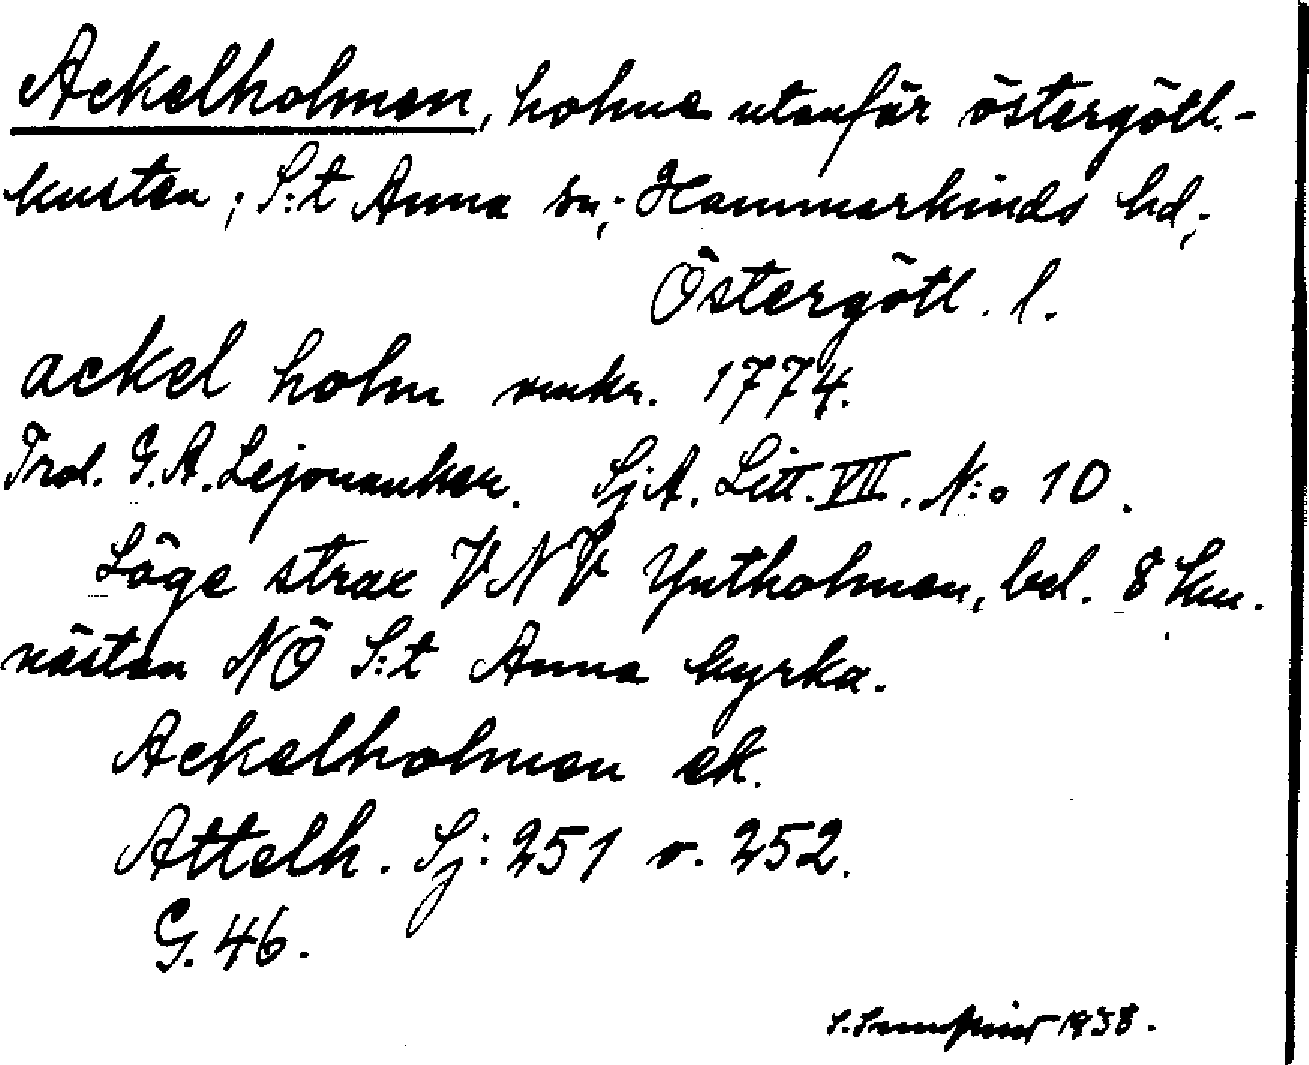 Ackelholmen, holme utanför östergötl.-
kusten; S:t Anna sn; Hammarkinds hd;
Östergötl. l.
ackel holm 1774.
G. A. Lejonanker. SjA. Litt. VII. N:o 10.
Läge strax VNV Ytholmen, bel. 8 km.
nästan NÖ S:t Anna kyrka.
Ackelholmen ek.
Attelh. Sj: 251 o. 252.
G. 46.
1938.